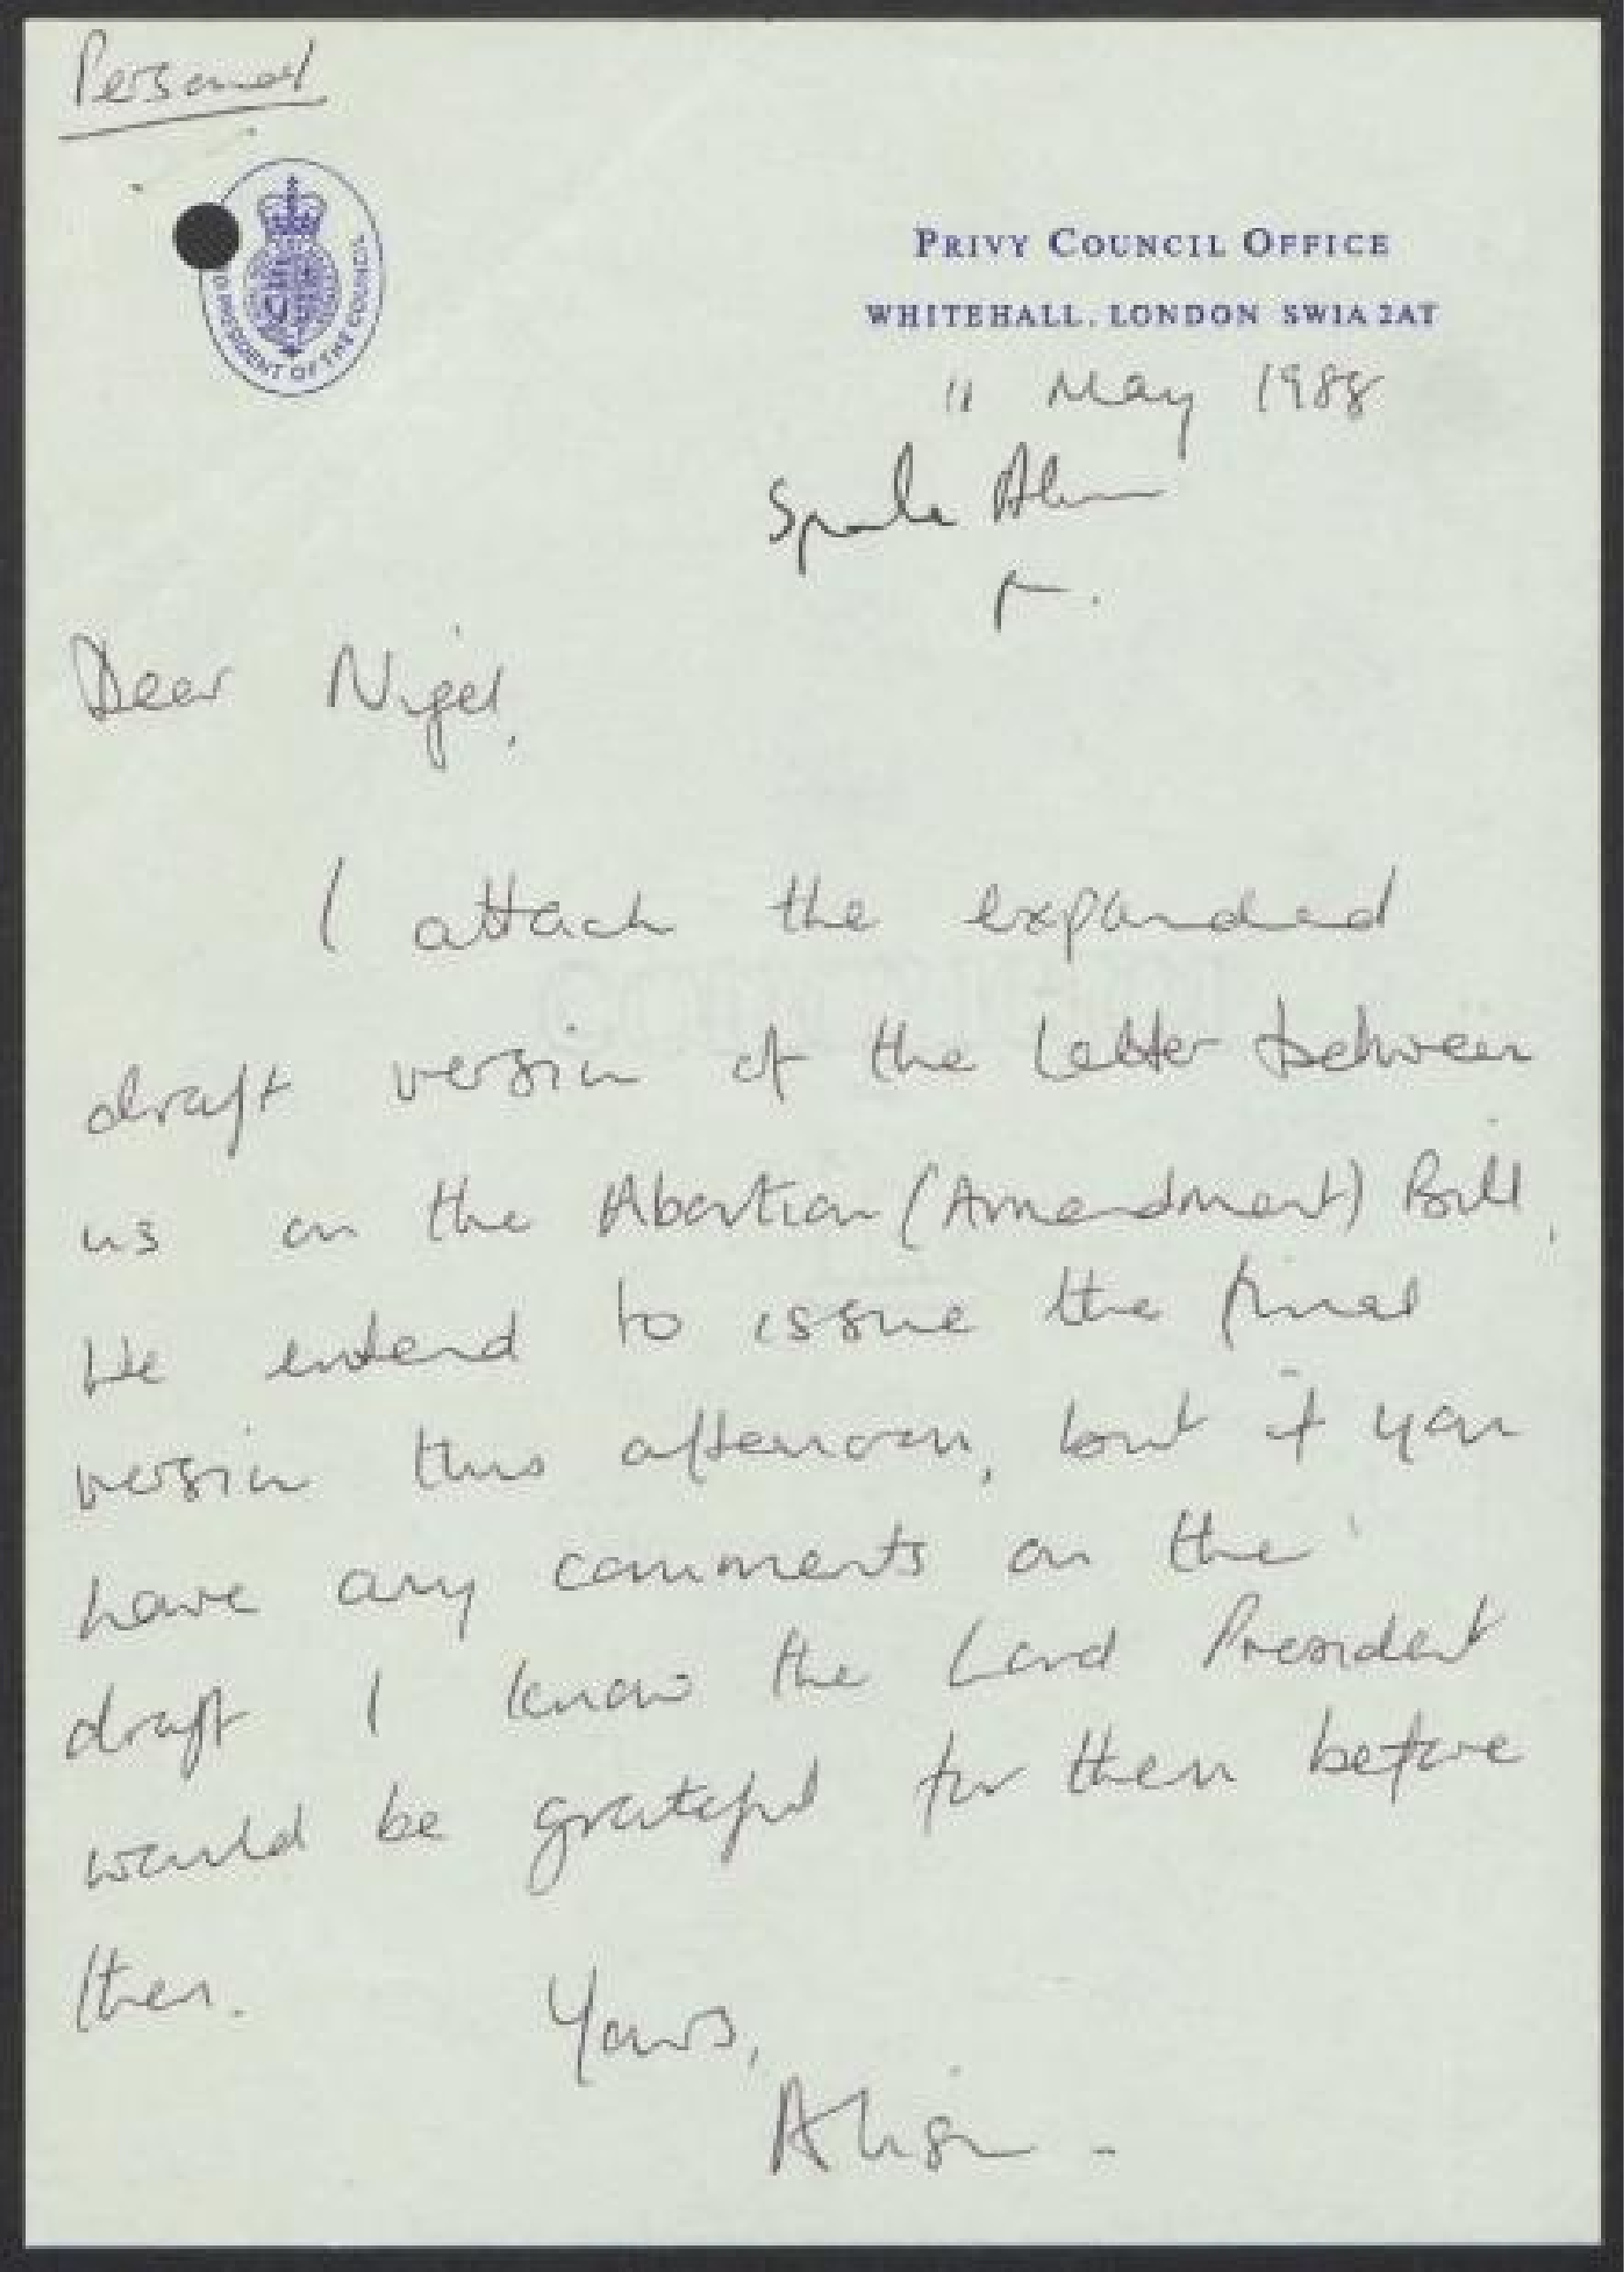 Personal
PRESIDENT OF THE COUNCIL
PRIVY COUNCIL OFFICE
WHITEHALL, LONDON SW1A 2AT
11 May 1988
Dear Nigel,
I attach the expanded
draft version of the letter between
us on the Abortion (Amendment) Bill.
We intend to issue the final
version this afternoon, but if you
have any comments on the
draft I know the Lord President
would be grateful for them before
then.
Yours,
Alison